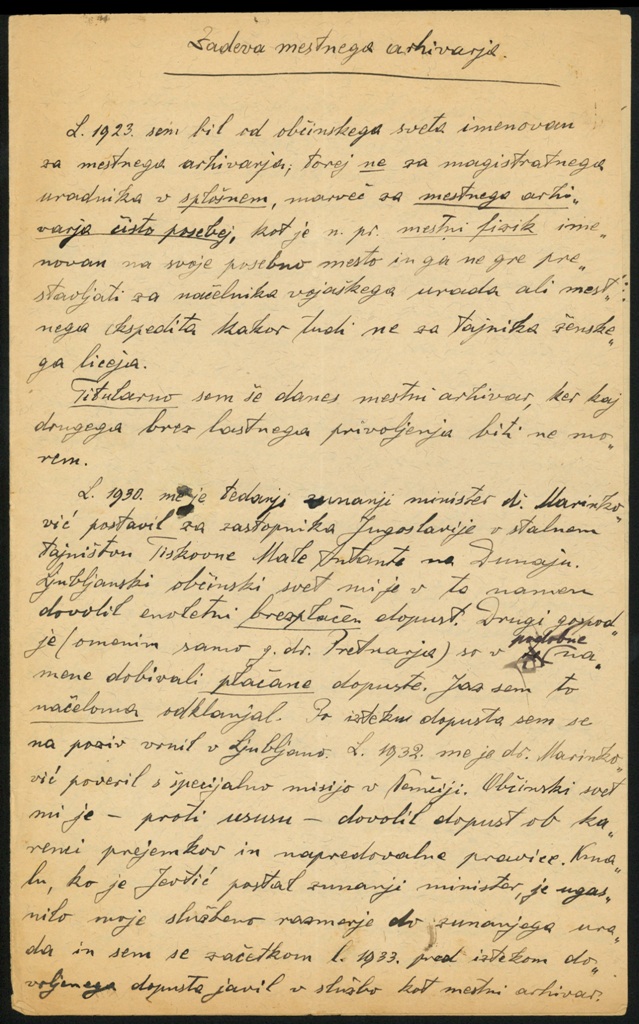 Zadeva mestnega arhivarja.
L. 1923. sem bil od občinskega sveta imenovan
za mestnega arhivarja; torej ne za magistratnega
uradnika v splošnem, marveč za mestnega arhi„
varja čisto posebej, kot je n. pr. mestni fizik ime„
novan na svoje posebno mesto in ga ne gre pre„
stavljati za načelnika vojaškega urada ali mest„
nega ekspedita kakor tudi ne za tajnika ženske„
ga liceja.
Titularno sem še danes mestni arhivar, ker kaj
drugega brez lastnega privoljenja biti ne mo„
rem.
L. 1930. me je tedanji zunanji minister dr. Marinko„
vić postavil za zastopnika Jugoslavije v stalnem
tajništvu Tiskovne Male Antante na Dunaju.
Ljubljanski občinski svet mi je v ta namen
dovolil enoletni brezplačen dopust. Drugi gospod„
je (omenim samo g. dr. Pretnarja) so v podobne na„
mene dobivali plačane dopuste. Jaz sem to
načeloma odklanjal. Po izteku dopusta sem se
na poziv vrnil v Ljubljano. L. 1932. me je dr. Marinko„
vić poveril s špecijalno misijo v Nemčiji. Občinski svet
mi je – proti ususu – dovolil dopust ob ka„
renci prejemkov in napredovalne pravice. Kma„
lu, ko je Jevtić postal zunanji minister, je ugas„
nilo moje službeno razmerje do zunanjega ura„
da in sem se začetkom l. 1933. pred iztekom do„
voljenega dopusta javil v službo kot mestni arhivar.